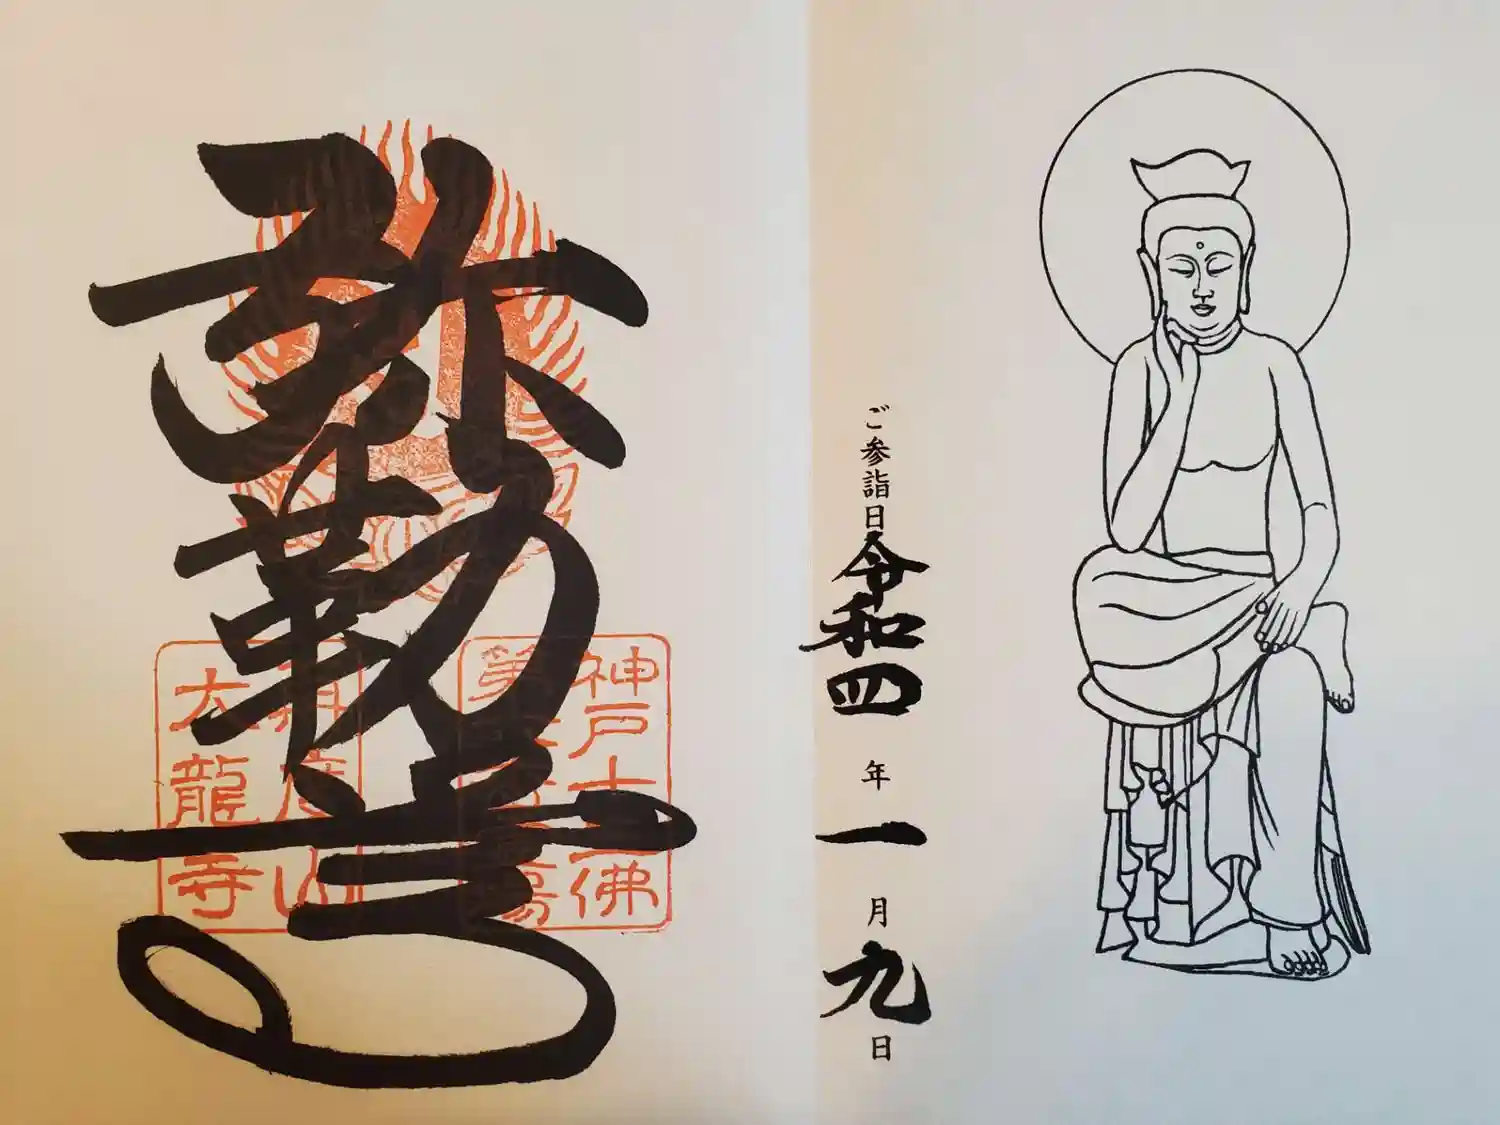 ご参詣日令和四年一月九日
弥勒尊
神戸十三佛
再度山
大龍寺